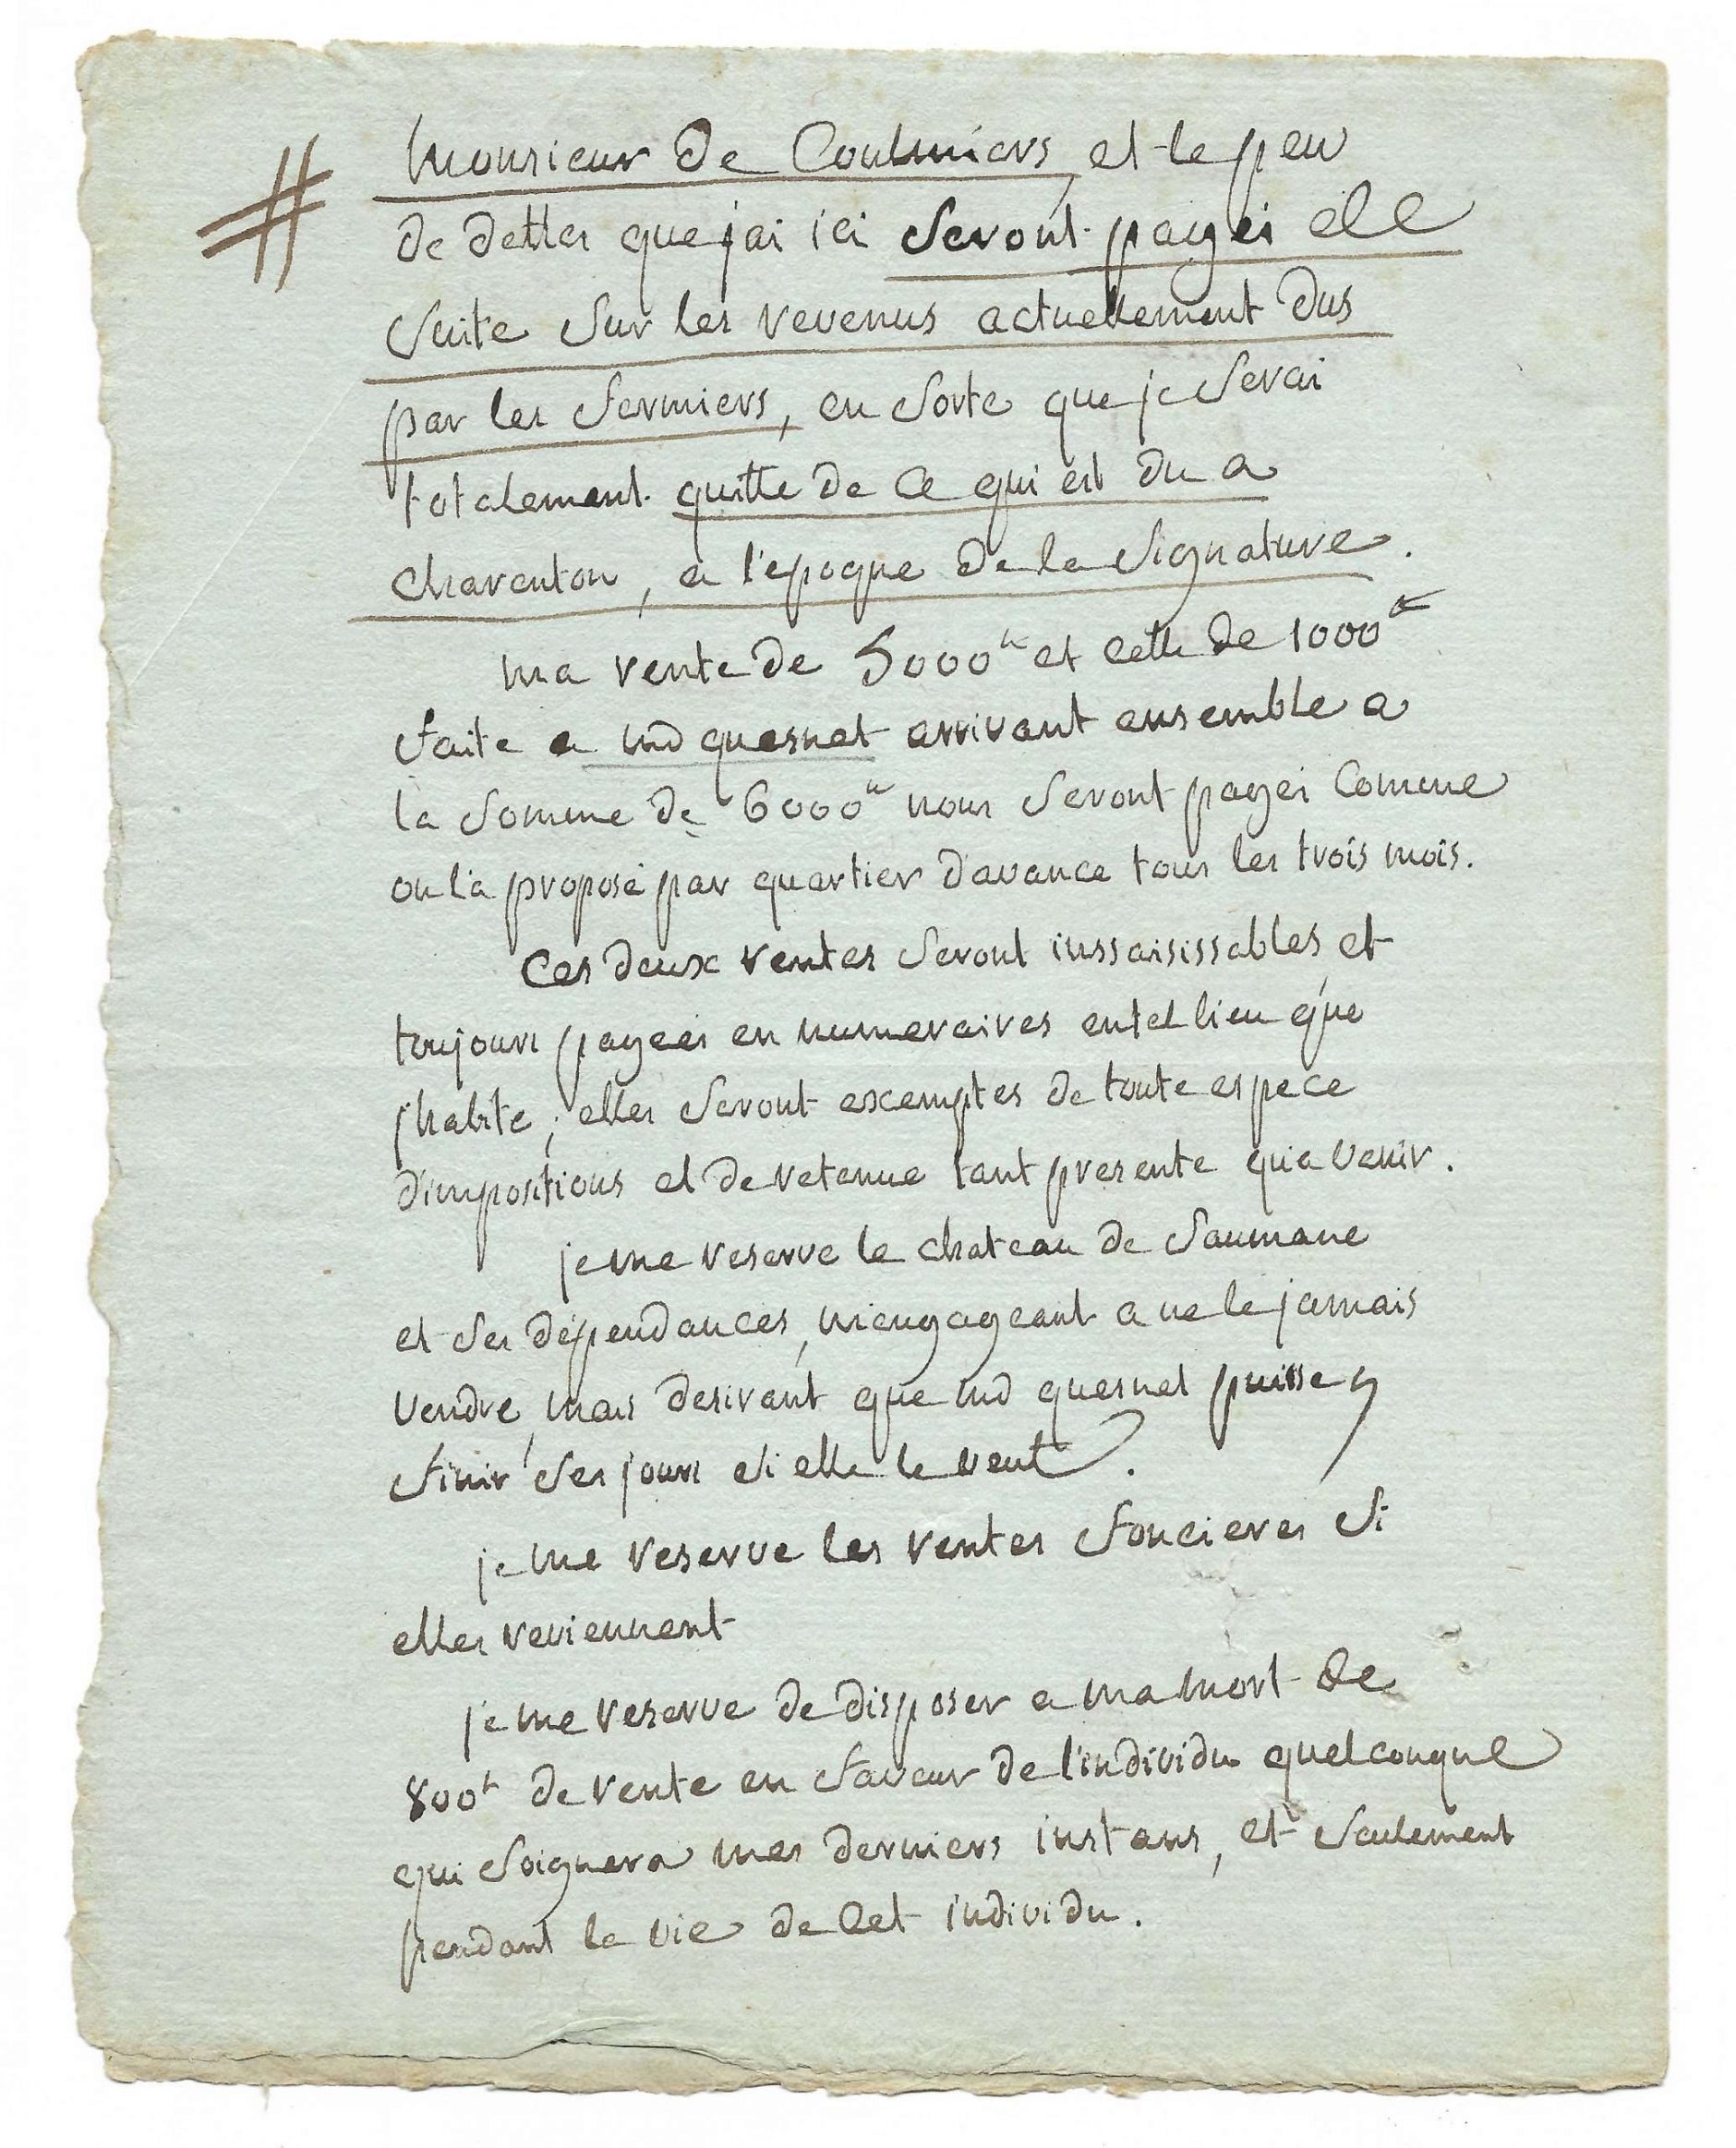 Monsieur de Coulmiers, et le peu
de dettes que jai ici seront payés
suite sur les revenus actuellement dus
par les fermiers, en sorte que je serai
totalement quitte de ce qui est du a
charenton, a l'epoque de la signature.
ma rente de 5000# et celle de 1000#
faite a md quesnet arrivant ensemble a
la somme de 6000# nous seront payés comme
on l'a proposé par quartier d'avance tous les trois mois.
Ces deux rentes seront inssaisissables et
toujours payees en numeraires en tel lieu que
j'habite; elles seront exemptes de toute espece
d'impositions et de retenue tant presente qu'a venir.
je me reserve le chateau de saumane
et ses dépendances, m'engageant a ne le jamais
vendre, mais desirant que md quesnet puisse y
finir ses jours si elle le veut.
je me reserve les rentes foncieres si
elles reviennent
je me reserve de disposer a ma mort de
800# de rente en faveur de l'individu quelconque
qui soignera mes derniers instans, et seulement
pendant la vie de cet individu.